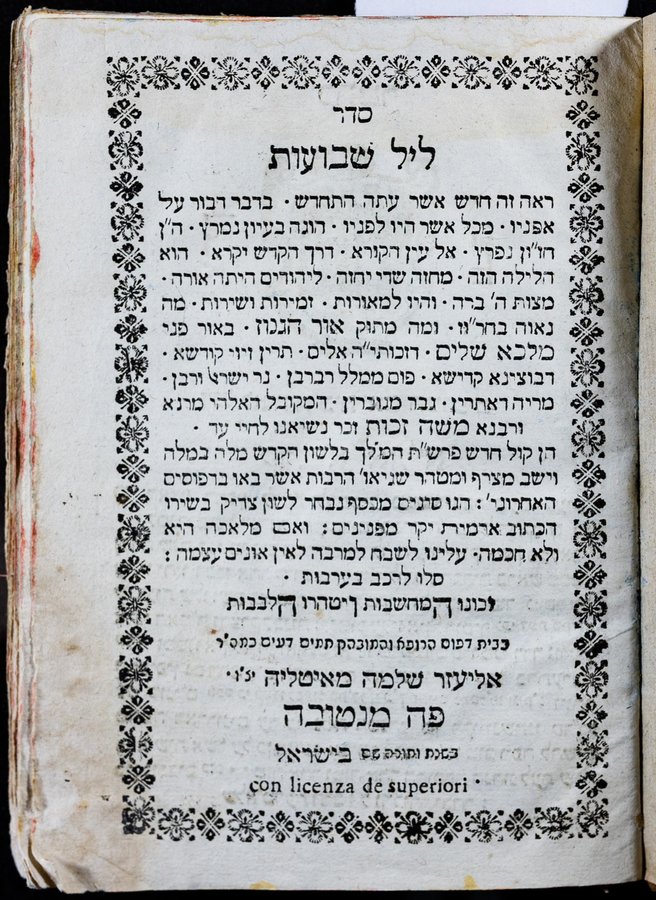 סדר
ליל שבועות
ראה זה חדש אשר עתה התחדש · בדבר דבור על
אפניו · מכל אשר היו לפניו · הוגה בעיון נמרץ · ה"ן
חז"ון נפרץ · אל עין הקורא · דרך הקדש יקרא · הוא
הלילה הזה · מחזה שדי יחזה · ליהודים היתה אורה ·
מצות ה' ברה · והיו למאורות · זמירות ושירות · מה
נאוה בחר"וז · ומה מתוק אור הגנוז · באור פני
מלכא שלים · דזכותי"ה אלים · תרין זיוי קודשא ·
דבוצינא קדישא · פום ממלל רברבן · נר ישראל ורבן ·
מריה דאתרין · גבר מגוברין · המקובל האלהי מרנא
ורבנא משה זכות זכר נשיאנו לחיי עד ·
הן קול חדש פרש"ת המלך בלשון הקדש מלה במלה
וישב מצרף ומטהר שניאו' הרבות אשר באו בדפוסים
האחרוני' : הנו סיגים מכסף נבחר לשון צדיק בשירו
הכתוב ארמית יקר מפנינים : ואם מלאכה היא
ולא חכמה · עלינו לשבח למרבה לאין אונים עצמה :
סלו לרכב בערבות ·
יכונו המחשבות ויטהרו הלבבות
בבית דפוס הרופא והמובהק תמים דעים כמה"ר
אליעזר שלמה מאיטליה יצ"ו ·
פה מנטובה
בשנת ותורה שם בישראל
con licenza de superiori ·